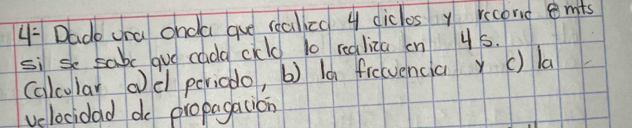 4= Dado una onda que realiza 4 ciclos y recorre 8 mts
si se sabe que cada ciclo lo realiza en 4 s.
Calcular a) el periodo, b) la frecuencia y c) la
velocidad de propagación